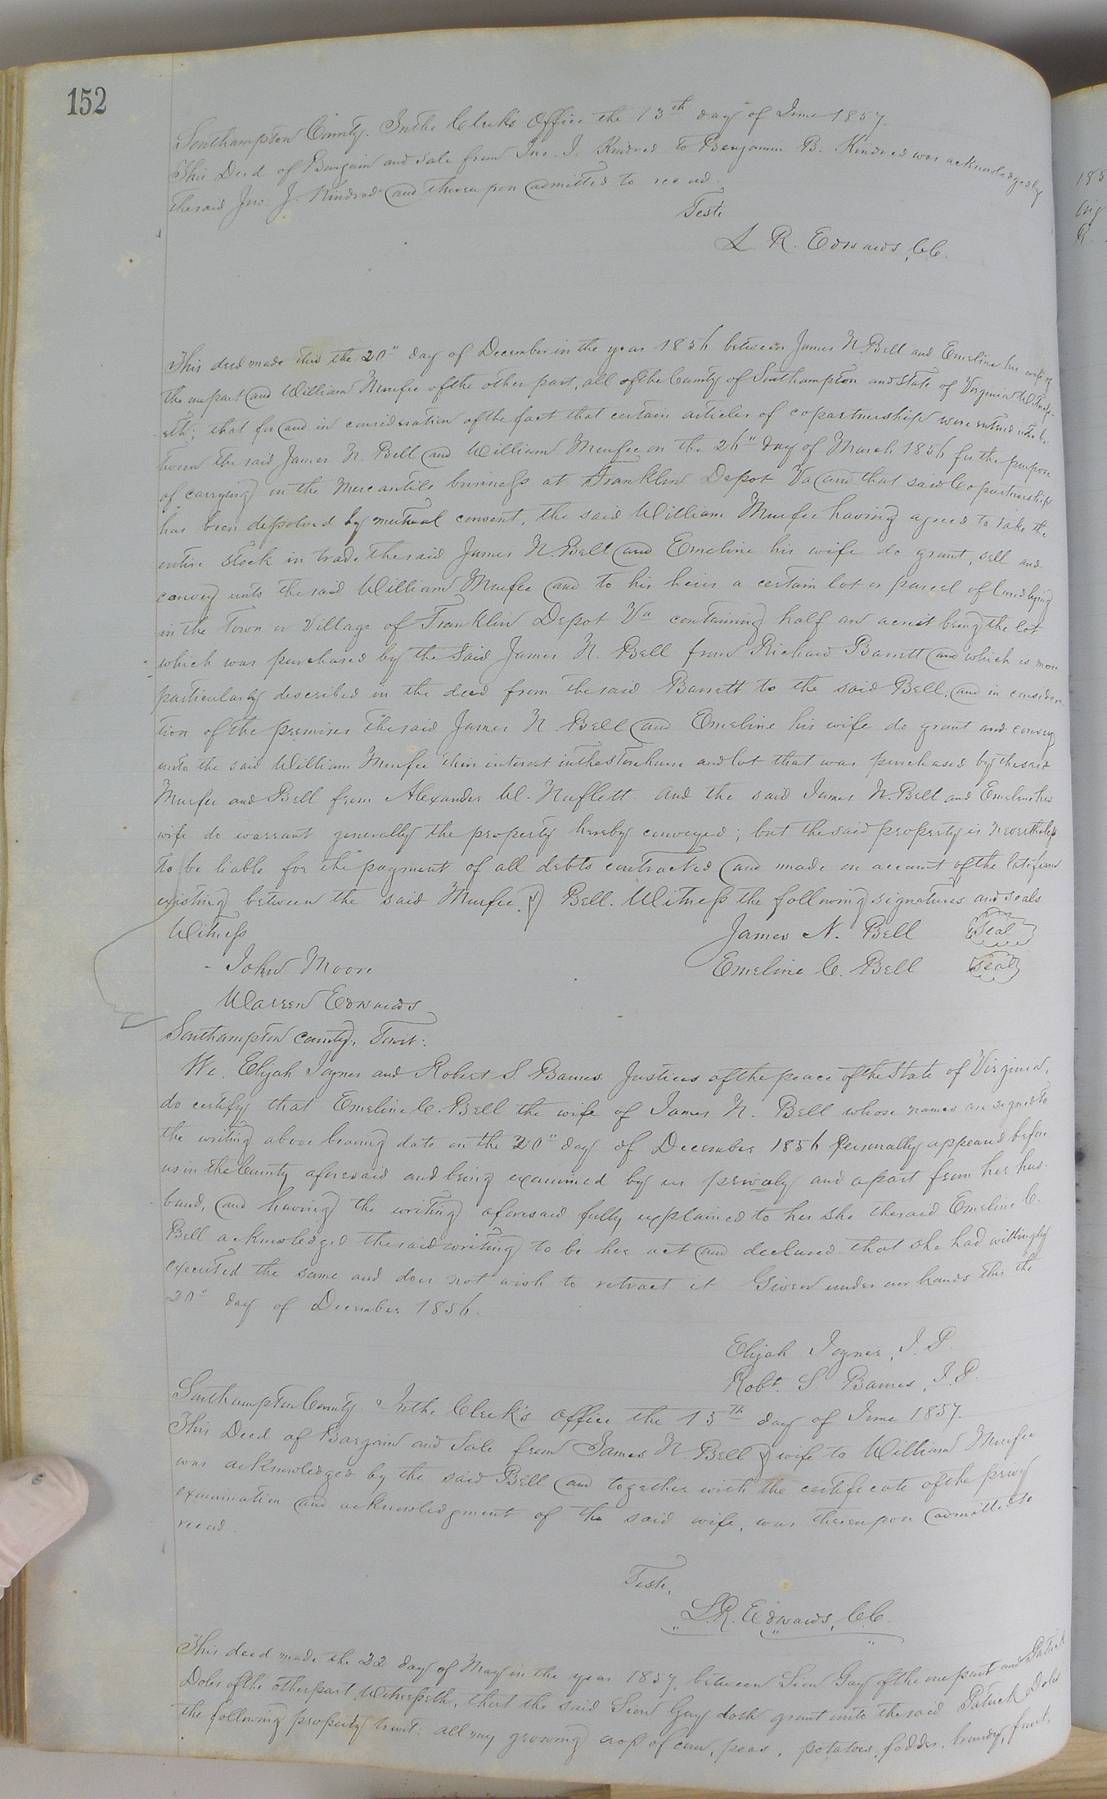 152
Southampton County. In the Clerk's Office the 13th day of June 1857.
This Deed of Bargain and Sale from Jno. J. Kindred to Benjamin B. Kindred was acknowledged by
the said Jno. J. Kindred and thereupon admitted to record.
Teste
L R. Edwards, C.C.
This deed made this the 20" day of December in the year 1856 between James N. Bell and Emeline his wife of
the one part and William Murfee of the other part, all of the County of Southampton and State of Virginia Witness-
eth; that for and in consideration of the fact that certain articles of copartnership were entered into be-
tween the said James N. Bell and William Murfee on the 26" day of March 1856 for the purpose
of carrying on the Mercantile business at Franklin Depot Va and that said Copartnership
has been dissolved by mutual consent, the said William Murfee having agreed to take the
entire stock in trade the said James N. Bell and Emeline his wife do grant, sell and
convey unto the said William Murfee and to his heirs a certain lot or parcel of land lying
in the Town or Village of Franklin Depot Va containing half an acre it being the lot
which was purchased by the said James N. Bell from Richard Barrett and which is more
particularly described in the deed from the said Barrett to the said Bell, and in considera
tion of the premises the said James N. Bell and Emeline his wife do grant and convey
unto the said William Murfee their interest in the Storehouse and lot that was purchased by the said
Murfee and Bell from Alexander W. Norfleet. And the said James N. Bell and Emeline his
wife do warrant generally the property hereby conveyed; but the said property is nevertheless
to be liable for the payment of all debts contracted and made on account of the late firm
existing between the said Murfee & Bell. Witness the following signatures and seals
Witness James N. Bell Seal
John Moore Emeline C. Bell Seal
Warren Edwards
Southampton County, Towit:
We, Elijah Joyner and Robert S. Barnes Justices of the peace of the State of Virginia,
do certify that Emeline C. Bell the wife of James N. Bell whose names are signed to
the writing above bearing date on the 20" day of December 1856 personally appeared before
us in the County aforesaid and being examined by us privaly and apart from her hus-
band, and having the writing aforesaid fully explained to her she the said Emeline C.
Bell acknowledged the said writing to be her act and declared that she had willingly
executed the same and does not wish to retract it Given under our hands this the
20" day of December 1856.
Elijah Joyner, J. P.
Robt. S Barnes, J. P.
Southampton County In the Clerk's Office the 15th day of June 1857.
This Deed of Bargain and Sale from James N. Bell & wife to William Murfee
was acknowledged by the said Bell and together with the certificate of the privy
examination and acknowledgment of the said wife, was thereupon admitted to
record.
Teste,
L.R. Edwards, C.C.
This deed made the 22 day of May in the year 1857, between Sion Gay of the one part and Patrick
Doles of the other part, Witnesseth, that the said Sion Gay doth grant unto the said Patrick Doles
the following property towit: all my growing crop of corn, peas, potatoes, fodder, brandy, fruit,